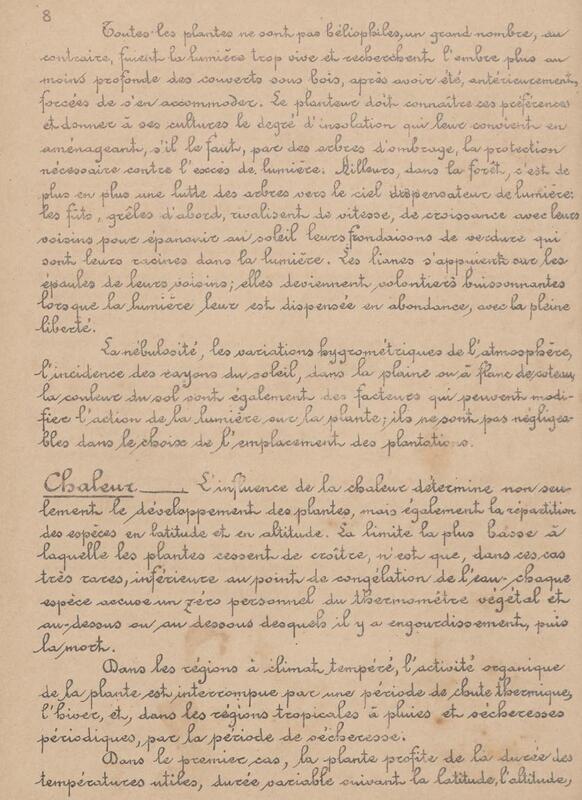 8
Toutes les plantes ne sont pas héliophiles, un grand nombre, au
contraire, fuient la lumière trop vive et recherchent l'ombre plus ou
moins profonde des couverts sous bois, après avoir été, antérieurement,
forcées de s'en accommoder. Le planteur doit connaître ces préférences
et donner à ses cultures le degré d'insolation qui leur convient en
aménageant, s'il le faut, par des arbres d'ombrage, la protection
nécessaire contre l'excès de lumière. Ailleurs, dans la forêt, c'est de
plus en plus une lutte des arbres vers le ciel dispensateur de lumière:
les fûts, grêles d'abord, rivalisent de vitesse, de croissance avec leurs
voisins pour épanouir au soleil leurs frondaisons de verdure qui
sont leurs racines dans la lumière. Les lianes s'appuient sur les
épaules de leurs voisins; elles deviennent volontiers buissonnantes
lorsque la lumière leur est dispensée en abondance, avec la pleine
liberté.
La nébulosité, les variations hygrométriques de l'atmosphère,
l'incidence des rayons du soleil, dans la plaine ou à flanc de coteau,
la couleur du sol sont également des facteurs qui peuvent modi-
fier l'action de la lumière sur la plante; ils ne sont pas négligea-
bles dans le choix de l'emplacement des plantations.
Chaleur.___ L'influence de la chaleur détermine non seu-
lement le développement des plantes, mais également la répartition
des espèces en latitude et en altitude. La limite la plus basse à
laquelle les plantes cessent de croître, n'est que, dans ces cas
très rares, inférieure au point de congélation de l'eau- chaque
espèce accuse un zéro personnel du thermomètre végétal et
au-dessus ou au dessous desquels il y a engourdissement, puis
la mort.
Dans les régions à climat tempéré, l'activité organique
de la plante est interrompue par une période de chute thermique,
l'hiver, et, dans les régions tropicales à pluies et sécheresses
périodiques, par la période de sécheresse.
Dans le premier cas, la plante profite de la durée des
températures utiles, durée variable suivant la latitude, l'altitude,